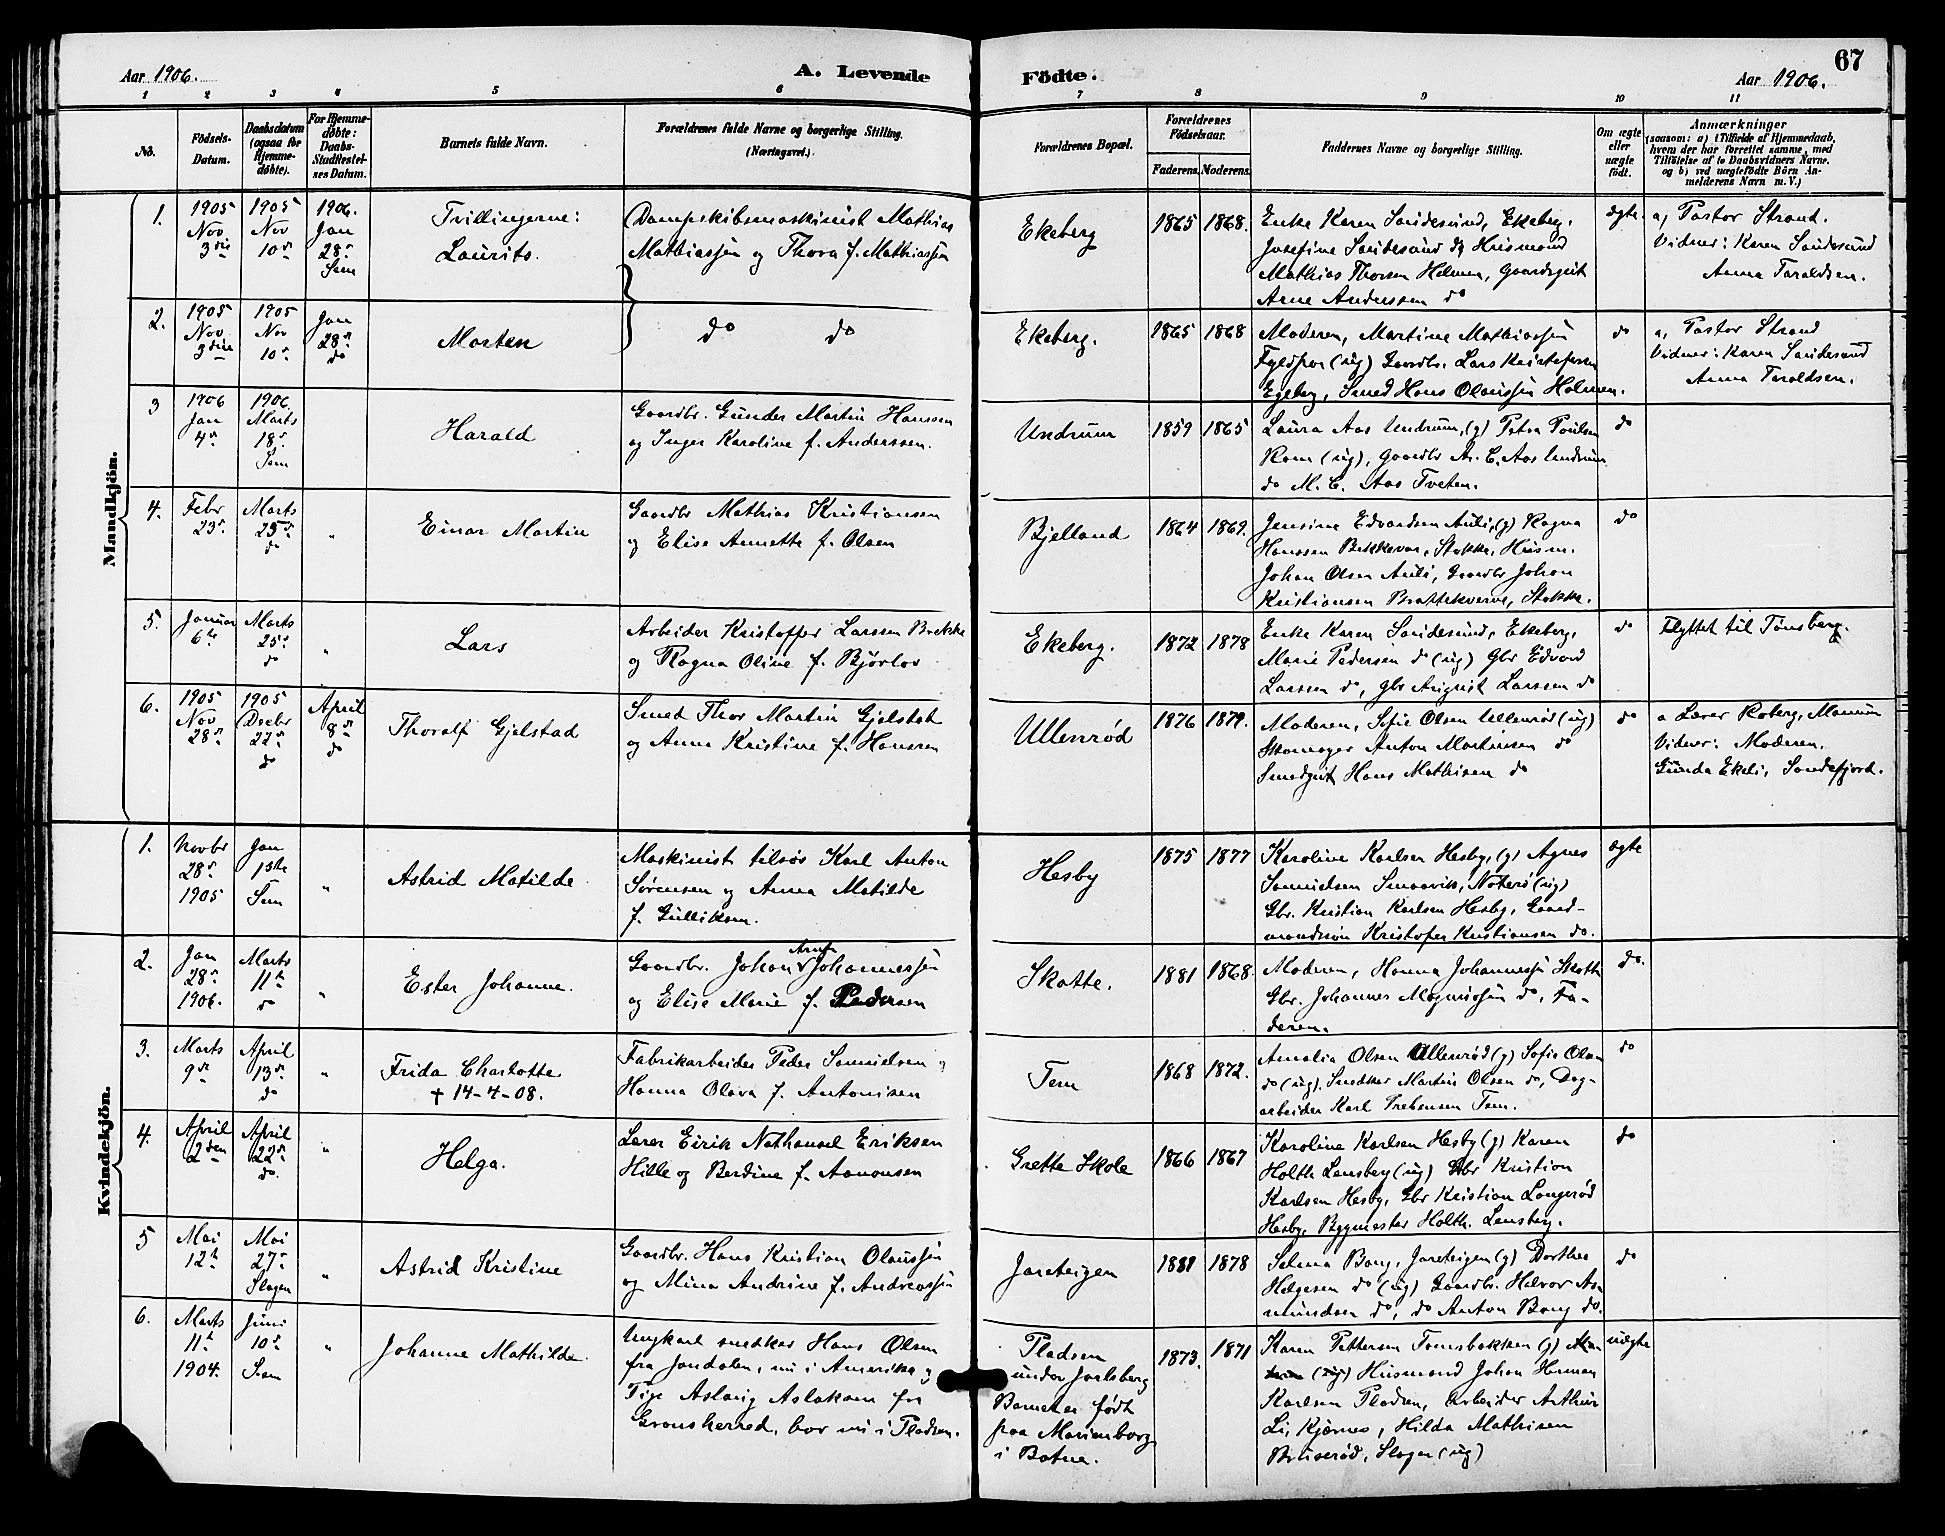 Aar 1906.
A. Levende
Födte.
Aar 1906.
67
1 2 3 4 5 6 7 8 9 10 11
No.
Födsels-
Datum.
Daabsdatum
(ogsaa for
Hjemme-
døbte).
For Hjemme-
døbte:
Daabs-
Stadfæstel-
ses Datum.
Barnets fulde Navn.
Forældrenes fulde Navne og borgerlige Stilling.
(Næringsvei.)
Forældrenes Bopæl.
Forældrenes
Födselsaar.
Faderens. Moderens.
Faddernes Navne og borgerlige Stilling.
Om ægte
eller
uægte
født.
Anmærkninger
(saasom: a) i Tilfælde af Hjemmedaab,
hvem der har forrettet samme, med
Tilföielse af to Daabsvidners Navne.
og b) ved uægtefödte Börn An-
melderens Navn m. V.)
Mandkjön.
1.
1905
Nov
3die
1905
Nov
10de
1906.
Jan
28de
Sem
Tvillingerne:
Laurits.
Dampskibsmaskinist Mathias
Mathiassen og Thora f. Mathiassen
Ekeberg
1865
1868.
Enke Karen Sandesund, Ekeberg,
Josefine Sandesund do, Husmand
Mathias Thorsen Holmen, Gaardsgut
Arne Anderssen do
ægte.
a, Pastor Strand.
Vidner: Karen Sandesund
Anna Taraldsen.
2.
1905
Nov
3die
1905
Nov
10de
Jan
28de
do
Morten
do do
Ekeberg.
1865
1868
Moderen, Martine Mathiassen
(ug) Gaardbr. Lars Kristofersen
Egeberg, Smed Hans Olaussen Holmen.
do
a, Pastor Strand
Vidner: Karen Sandesund
Anna Taraldsen.
3
1906
Jan
4de
1906.
Marts
18de
Sem
Harald
Gaardbr. Gunder Martin Hanssen
og Inger Karoline f. Anderssen.
Undrum
1859
1865
Laura Aas Undrum, (g) Petra Poulsen
Ram (ug), Gaardbr A. C. Aas Undrum
do M. C. Aas Tveten.
do
4.
Febr
23de
Marts
25de
do
"
Einar Martin
Gaardbr Mathias Kristiansen
og Elise Annette f. Olsen
Bjelland
1864
1869.
Jensine Edvardsen Auli, (g) Ragna
Hanssen Stokke, Husm.
Johan Olsen Auli, Gaardbr Johan
Kristiansen Brattekverve, Stokke.
do
5.
Januar
6te
Marts
25de
do
"
Lars
Arbeider Kristoffer Larssen Brekke
og Ragna Oline f. Bjørlov
Ekeberg.
1872
1878
Enke Karen Sandesund, Ekeberg,
Marie Pedersen do (ug) Gbr Edvard
Larssen do, Gbr August Larssen do
do
Flyttet til Tønsberg.
6.
1905
Nov
28de
1905
Decbr
22de
do
April
8de
do
Thoralf Gjelstad
Smed Thor Martin Gjelstad
og Anna Kristine f. Hanssen
Ullenrød
1876
1879.
Moderen, Sofie Olsen Ullenrød (ug)
Skomager Anton Martinsen do
Smedgut Hans Mathisen do
do
a Lærer Roberg,
Vidner: Moderen.
Gunda Ekeli, Sandefjord.
Kvindekjön.
1.
Novbr
28de
1905
Jan
Sem
"
Astrid Matilde
Maskinist tilsøs Karl Anton
Sørensen og Anna Matilde
f. Gulliksen.
Hesby
1875
1877
Karoline Karlsen Hesby, (g) Agnes
Samuelsen Smaavik, Noterø (ug)
Gbr. Kristian Karlsen Hesby, Gaard-
mandssøn Kristofer Kristiansen do.
ægte
2.
Jan
28de
1906.
Marts
11te
do
"
Ester Johanne.
Gaardbr. Johan Arnt Johannessen
og Elise Marie f. Pedersen
Skatte.
1881
1868.
Moderen, Hanna Johannessen Skatte
Gbr. Johannes Magnussen do, Fa-
deren.
do.
3.
Marts
9de
April
13de
do
"
Frida Charlotte
+ 14-4-08.
Fabrikarbeider Peder Samuelsen og
Hanna Olava f. Antonisen
Tem
1868
1872.
Amalia Olsen Ullenrød (g) Sofie Olsen
do (ug), Snedker Martin Olsen do, Dag-
arbeider Karl Prebensen Tem.
do
4.
April
2den
April
22de
do.
"
Helga.
Lærer Eirik Nathanael Eriksen
Hille og Berdine f. Aanonsen
Grette Skole
1866
1867
Karoline Karlsen Hesby (g) Karen
Holth Lensberg (ug) Gbr Kristian
Karlsen Hesby, Gbr Kristian Langerød
Hesby, Bygmester Holth, Lensberg.
do
5
Mai
12te
Mai
27de
Slagen
"
Astrid Kristine
Gaardbr. Hans Kristian Olaussen
og Mina Andrine f. Andreassen
Jareteigen
1881
1878
Selma Bang, Jareteigen (g) Dorthea
Helgesen do (ug) Gaardbr. Halvor As-
mundsen do, do Anton Bang do.
do
6.
Marts
11te
1904.
Juni
10de
Sem
"
Johanne Mathilde
Ungkarl snedker Hans Olsen
fra Jondalen, nu i Amerika og
Pige Aslaug Aslaksen fra
Gransherred, bor nu i Pladsen.
Pladsen
under Jarlsberg
Barnet er født
paa Marienborg
i Botne.
1873.
1871
Karen Pettersen Tomsbakken (g)
(ug) Husmand Johan Herman
Karlsen Pladsen, Arbeider Arthur
Li, Kjærnes, Hilda Mathisen
Slagen (ug)
uægte